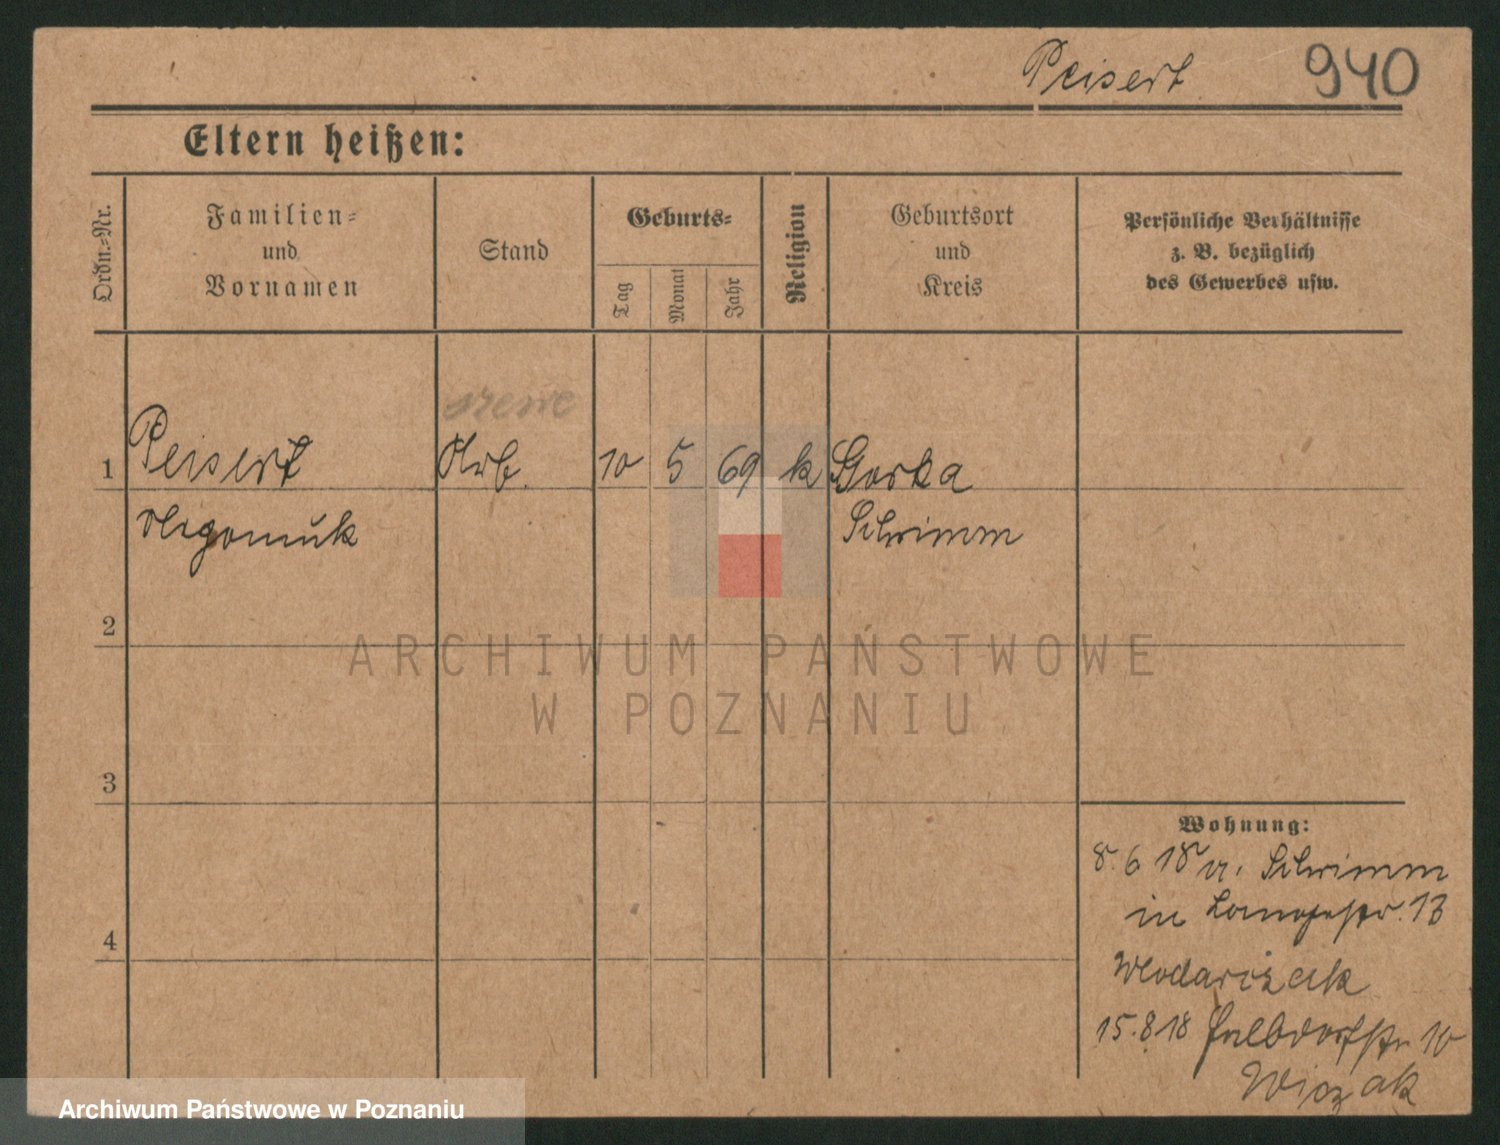 Peisert 940
Eltern heißen:
Ordn.-Nr.
Familien-
und
Vornamen
Stand
Geburts-
Tag
Monat
Jahr
Religion
Geburtsort
und
Kreis
Persönliche Verhältnisse
z. B. bezüglich
des Gewerbes usw.
1 Peisert Arb. 10 5 69 k Gorka
Schrimm
2
3
4
Wohnung:
8.6 18 v. Schrimm
in 13
Wlodarczak
15.8 18 10
Wiczak
ARCHIWUM PAŃSTWOWE
W POZNANIU
Archiwum Państwowe w Poznaniu